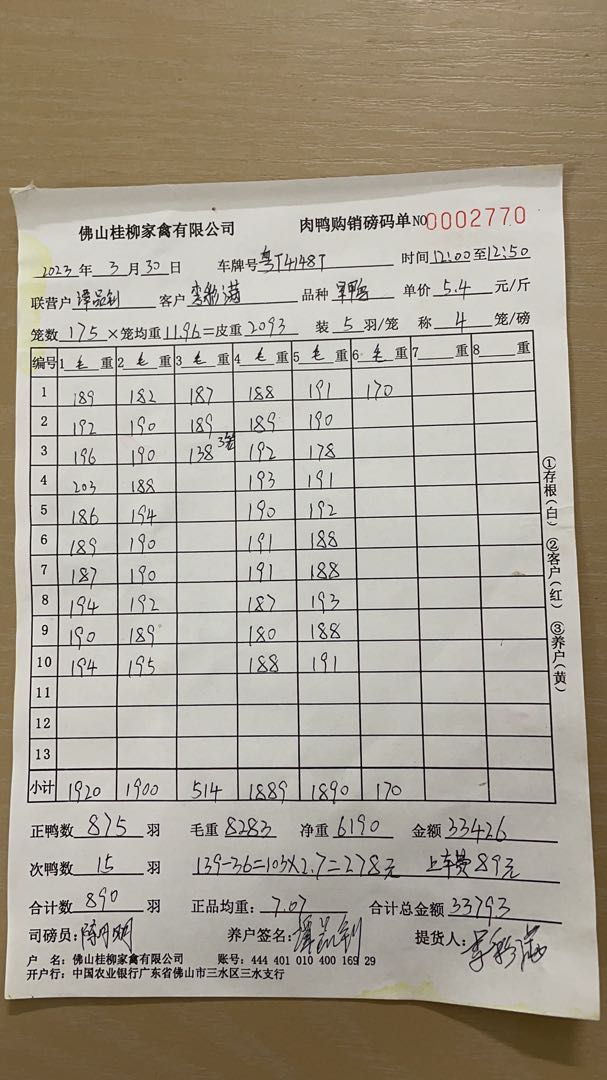 佛山桂柳家禽有限公司 肉鸭购销磅码单 NO 0002770
2023年 3月 30日 车牌号 粤T4148T 时间 12:00至12:50
联营户 谭品钊 客户 李彩满 品种 单价 5.4 元/斤
笼数 175 ×笼均重 11.96 =皮重 2093 装 5 羽/笼 称 4 笼/磅
编号 1 毛 重 2 毛 重 3 毛 重 4 毛 重 5 毛 重 6 毛 重 7 重 8 重
1 189 182 187 188 191 170
2 192 190 189 189 190
3 196 190 138 3笼 192 178
4 203 188 193 191
5 186 194 190 192
6 189 190 191 188
7 187 190 191 188
8 194 192 187 193
9 190 189 180 188
10 194 195 188 191
11
12
13
小计 1920 1900 514 1889 1890 170
①存根(白) ②客户(红) ③养户(黄)
正鸭数 875 羽 毛重 8283 净重 6190 金额 33426
次鸭数 15 羽 139-36=103×2.7=278元 上车费89元
合计数 890 羽 正品均重: 7.07 合计总金额 33793
司磅员: 养户签名: 谭品钊 提货人: 李彩满
户 名: 佛山桂柳家禽有限公司 账号: 444 401 010 400 169 29
开户行: 中国农业银行广东省佛山市三水区三水支行